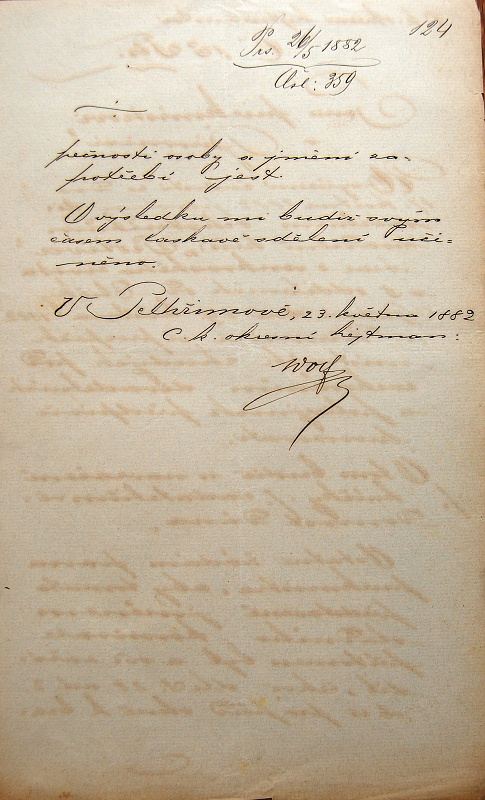 124
Prs. 26/5 1882
Čísl: 359
pečnosti osoby a jmění za-
potřebí jest.
O výsledku mi budiž svým
časem laskavé sdělení uči-
něno.
V Pelhřimově, 23. května 1882
C. k. okresní hejtman: